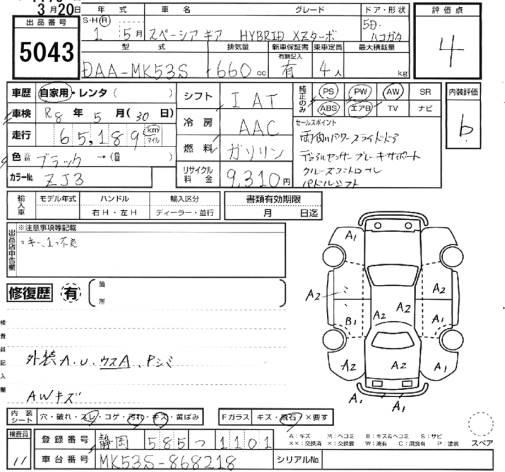 3月20日
出品番号
5043
年式 車名 グレード ドア・形状 評価点
S・H・R 1年 5月 スペーシア ギア HYBRID XZターボ 5D. ハコガタ
4
型式 排気量 新車保証書 乗車定員 最大積載量
有無記入
DAA-MK53S 660cc 有 4人 kg
車歴 自家用・レンタ( )
車検 R8年 5月(30日)
走行 65,189 km マイル
色 ブラック →( )
カラーNo. ZJ3
シフト IAT
冷房 AAC
燃料 ガソリン
リサイクル料金 9,310円
純正のみ PS PW AW SR
ABS エアB TV ナビ
内装評価
b
セールスポイント
両側パワースライドドア
デュアルセンサーブレーキサポート
クルーズコントロール
パドルシフト
輸入車 モデル年式 ハンドル 輸入区分
右H・左H ディーラー・並行
書類有効期限
月 日迄
出品店申告欄
※注意事項等記載
修復歴 有 箇所
検査員記入欄
外装A.U.ウスA、Pシミ
AWキズ
A1 A1
A2 A2
A2 A2
B1 A1
A2 A2
A1
内装シート 穴・破れ・スレ・コゲ・汚れ・キズ・黄ばみ
Fガラス キズ・飛石・×要す
検査員
11
登録番号 静岡 585 つ 1101
車台番号 MK53S-868218
シリアルNo.
A:キズ M:ヘコミ B:キズ&ヘコミ S:サビ
××:交換済 ×:要交換 W:波有 C:腐食有 P:塗装
スペア